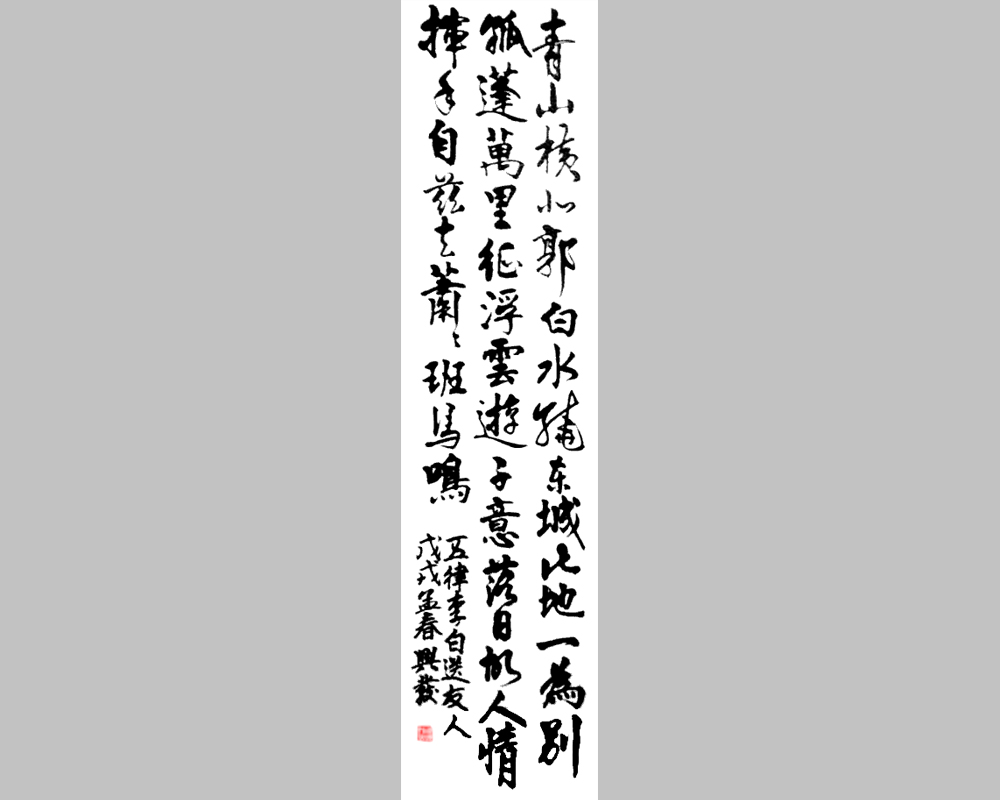 青山橫北郭白水繞东城此地一為別
孤蓬萬里征浮雲遊子意落日故人情
揮手自茲去蕭々班馬鳴
五律李白送友人
戊戌孟春興發